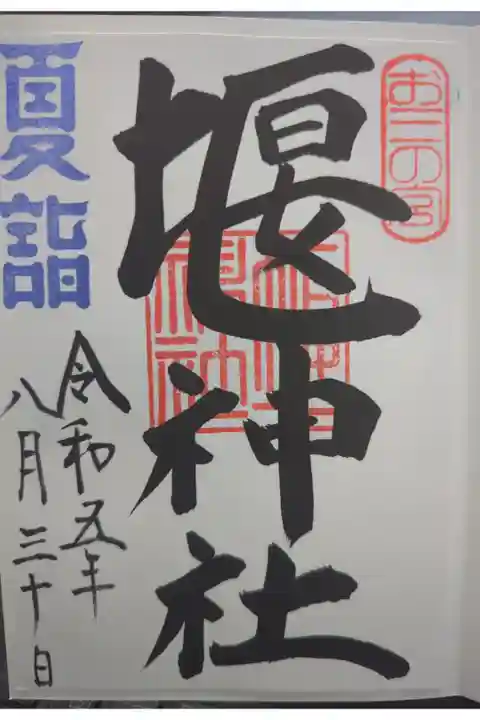 お三の宮
堰神社
夏詣
令和五年
八月三十日